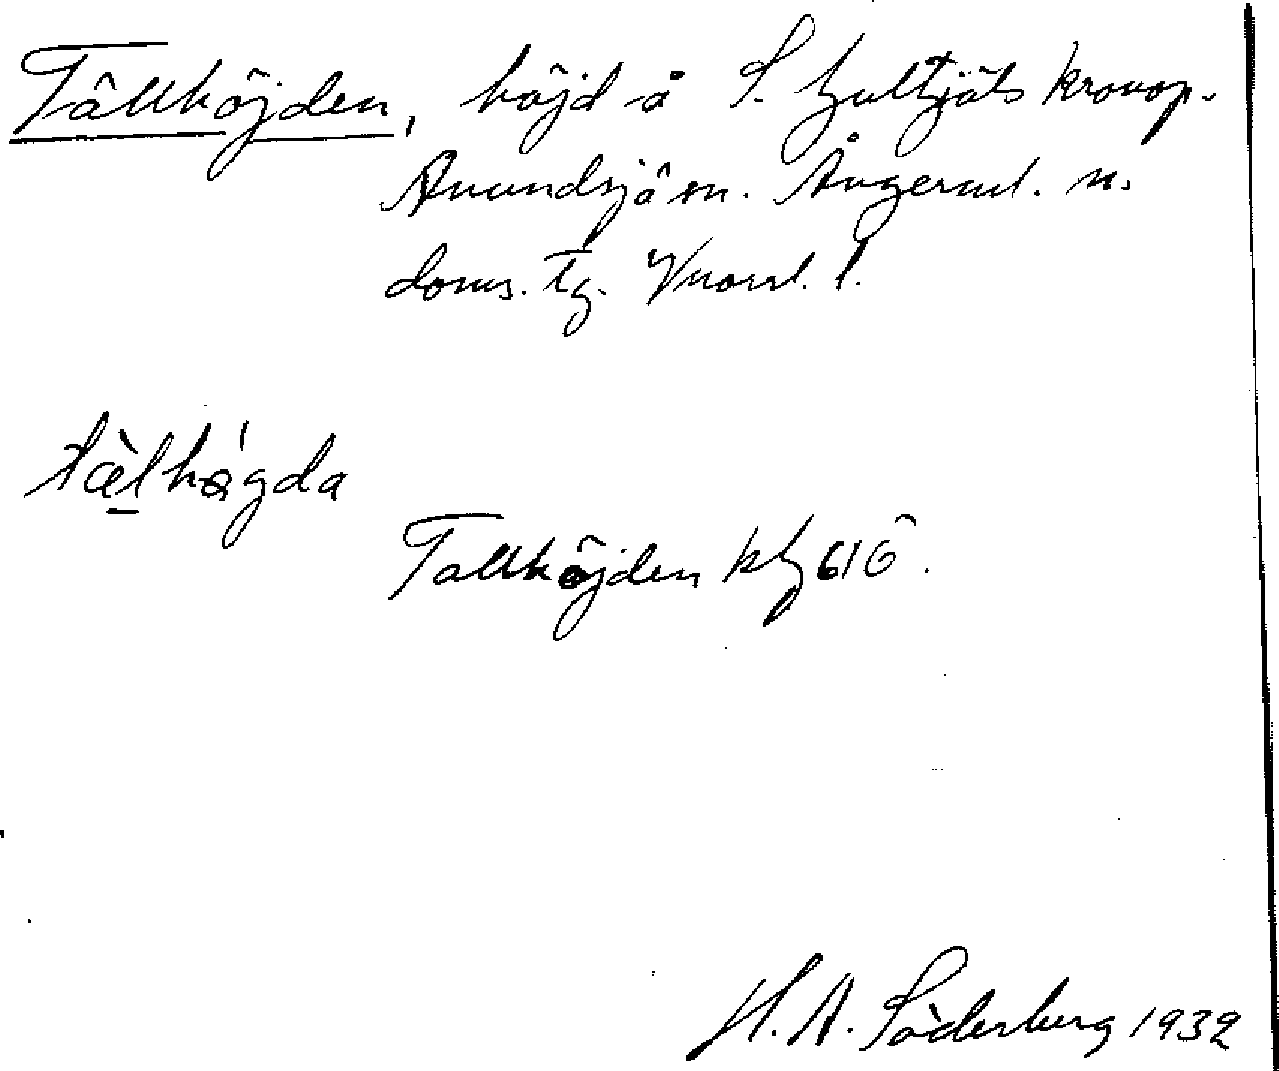 Tällhöjden, höjd å S. Gultjäls kronop.
Anundsjö sn. Ångerml. n.
doms. tg. Vnorrl. l.
tæ̀lhǿgda
Tallhöjden kbg 61Ö.
H. A. Söderberg 1932